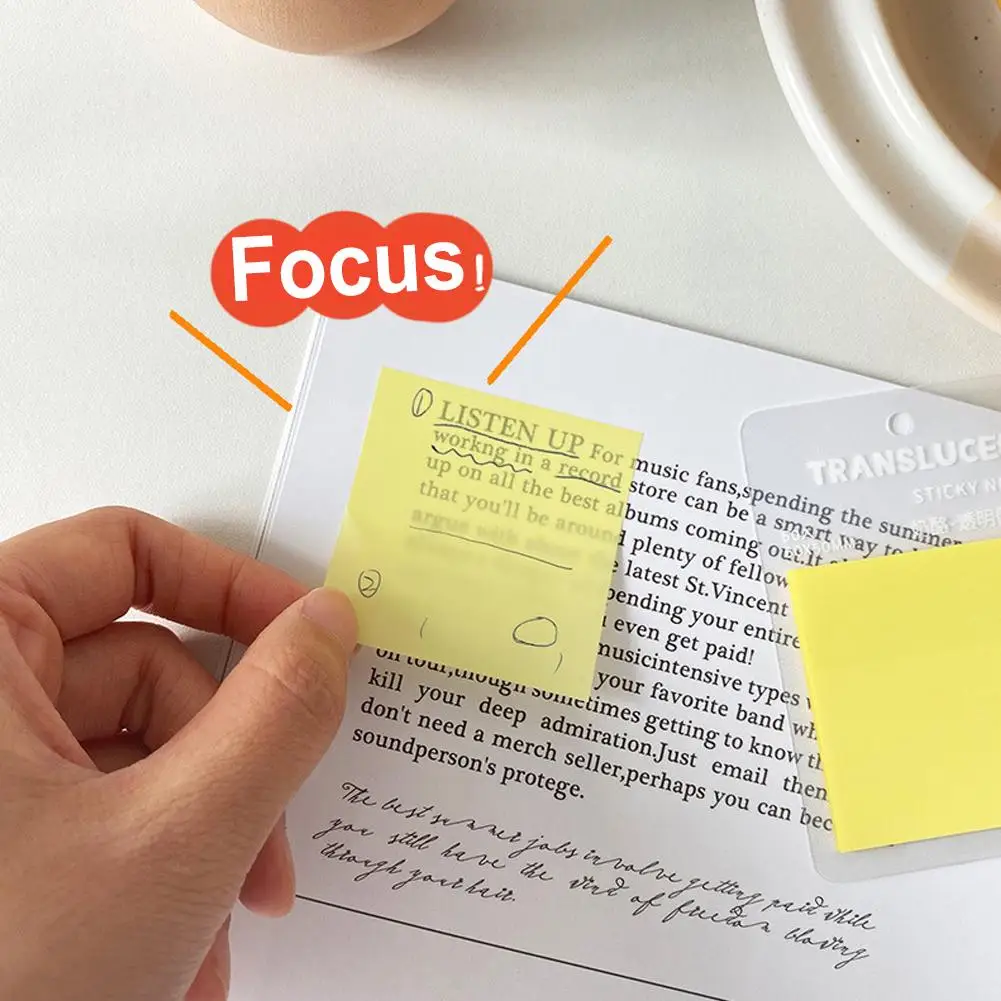 Focus!
① LISTEN UP For music fans,spending the summer
workng in a record store can be a smart way to
up on all the best albums coming out.It
that you'll be around plenty of fellow
argue with about latest St.Vincent
pending your entire
even get paid!
musicintensive types
②
on tour,though sometimes your favorite band wh
kill your deep getting to know th
don't need a admiration.Just email then
soundperson's merch seller,perhaps you can bec
protege.
The best summer jobs involve getting paid while
you still have the wind of freedom blowing
through your hair.
TRANSLUCE
STICKY N
透明
50MM